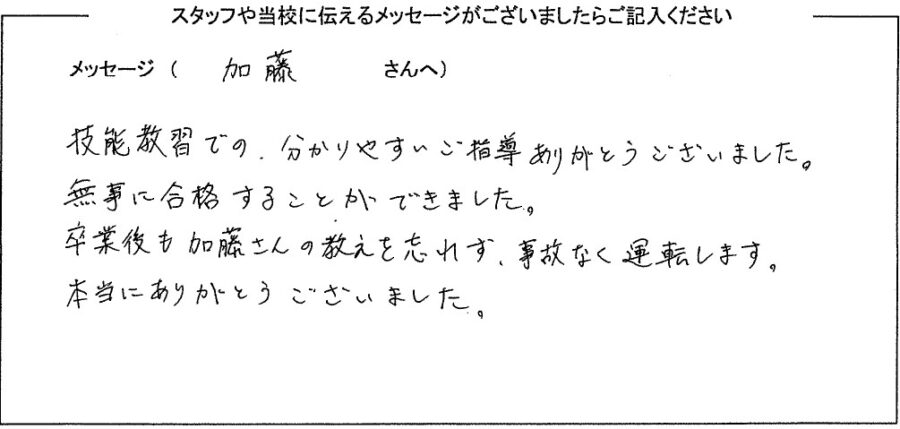 スタッフや当校に伝えるメッセージがございましたらご記入ください
メッセージ ( 加藤 さんへ)
技能教習での、分かりやすいご指導ありがとうございました。
無事に合格することができました。
卒業後も加藤さんの教えを忘れず、事故なく運転します。
本当にありがとうございました。